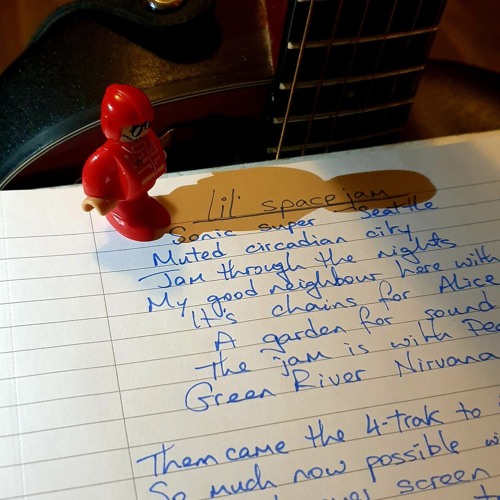 lil' space jam
Sonic super Seattle
Muted circadian city
Jam through the nights
My good neighbour here with
It's chains for Alice
A garden for sound
The jam is with
Green River Nirvana
Them came the 4-trak to
So much now possible
screen